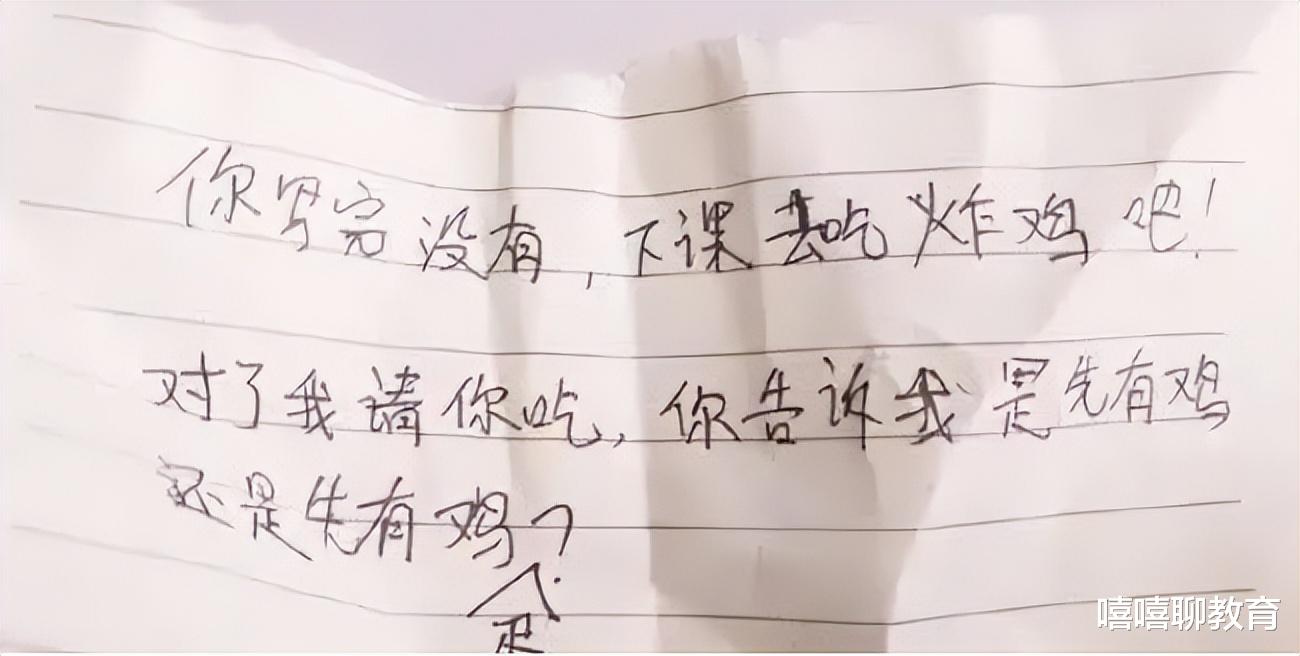 你写完没有,下课去吃炸鸡吧!
对了我请你吃,你告诉我是先有鸡
还是先有鸡?
蛋
嘻嘻聊教育